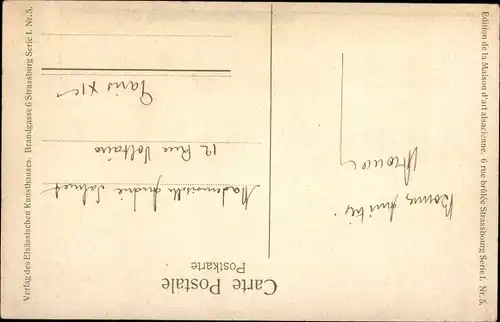 Carte Postale
Postkarte
Bonne amitié.
Mademoiselle
12 Rue Voltaire
Paris XIe
Edition de la Maison d'art alsacienne. 6 rue brûlée Strasbourg Serie I. Nr. 5.
Verlag des Elsässischen Kunsthauses. Brandgasse 6 Strassburg Serie I. Nr. 5.